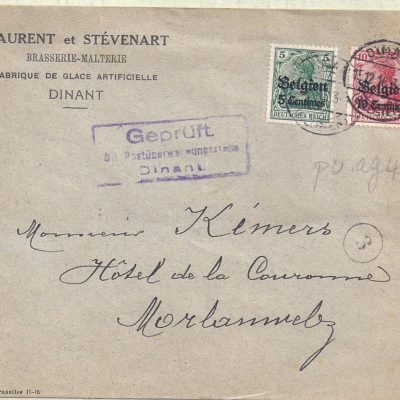 LAURENT et STÉVENART
BRASSERIE-MALTERIE
FABRIQUE DE GLACE ARTIFICIELLE
DINANT
5
5
Belgien
5 Centimes
DEUTSCHES REICH
Belgien
10 Centimes
DINANT
Geprüft
Postüberwachungsstelle
Dinant.
Monsieur Kémers
3
Hôtel de la Couronne
Morlanwelz
Bruxelles 11-15